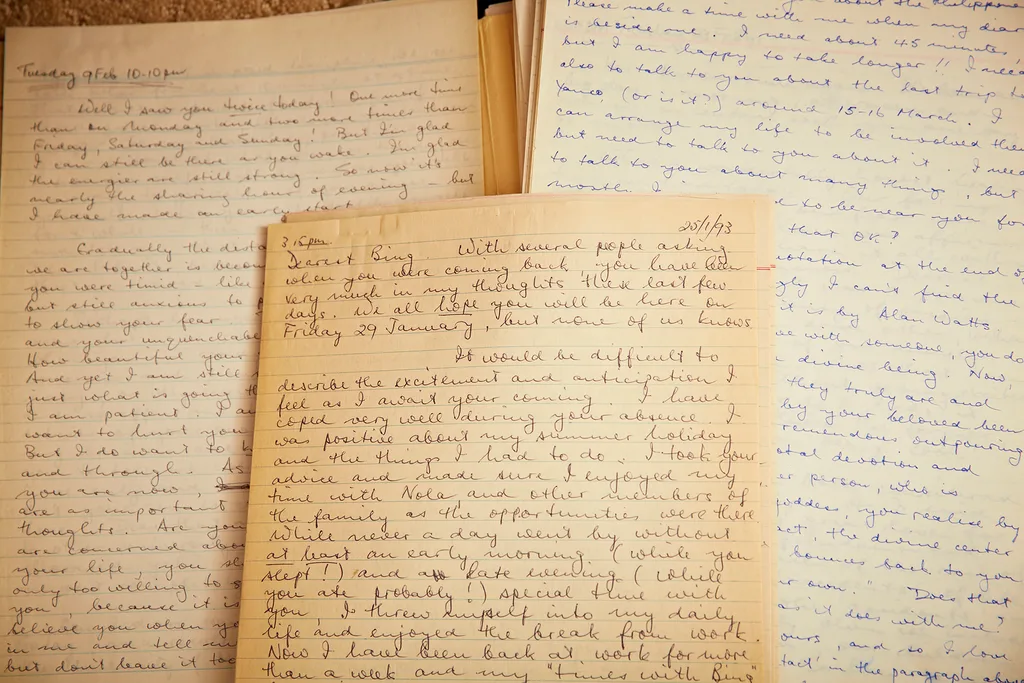 Tuesday 9 Feb 10.10pm
Well I saw you twice today! One more time
than on Monday and two more times than
Friday, Saturday and Sunday! But I'm glad
I can still be there as you wake. I'm glad
the energies are still strong. So now it's
nearly the sharing hour of evening – but
I have made an early start.
Gradually the dista
we are together is becom
you were timid – like
but still anxious to
to show your fear
and your unquenchable
How beautiful your
And yet I am still
just what is going th
I am patient. I a
want to hurt you
But I do want to k
and through. As
you are now,
are as important
thoughts. Are you
are concerned abou
your life, you sh
only too willing to s
you, because it is
believe you when yo
in me and tell me
but don't leave it too
3.15pm. 25/1/93
Dearest Bing. With several people asking
when you were coming back, you have been
very much in my thoughts these last few
days. We all hope you will be here on
Friday 29 January, but none of us knows.
It would be difficult to
describe the excitement and anticipation I
feel as I await your coming. I have
coped very well during your absence. I
was positive about my summer holiday
and the things I had to do. I took your
advice and made sure I enjoyed my
time with Nola and other members of
the family as the opportunities were there
While never a day went by without
at least an early morning (while you
slept!) and a late evening (while
you ate probably!) special time with
you, I threw myself into my daily
life and enjoyed the break from work.
Now I have been back at work for more
than a week and my "times with Bing"
about the Philippine
Please make a time with me when my diar
is beside me. I need about 45 minutes
but I am happy to take longer!! I need
also to talk to you about the last trip to
Yanco (or is it?) around 15-16 March. I
can arrange my life to be involved then
but need to talk to you about it. I need
to talk to you about many things, but
mostly I
to be near you for
that OK?
uotation at the end o
gly I can't find the
it is by Alan Watts
ve with someone, you do
divine being. Now,
they truly are and
by your beloved been
remendous outpouring
otal devotion and
er person, who is
goddess, you realise by
act, the divine center
bounces back to you
r own." Does that
as it does with me?
ours, and so I love
tact' in the paragraph abov